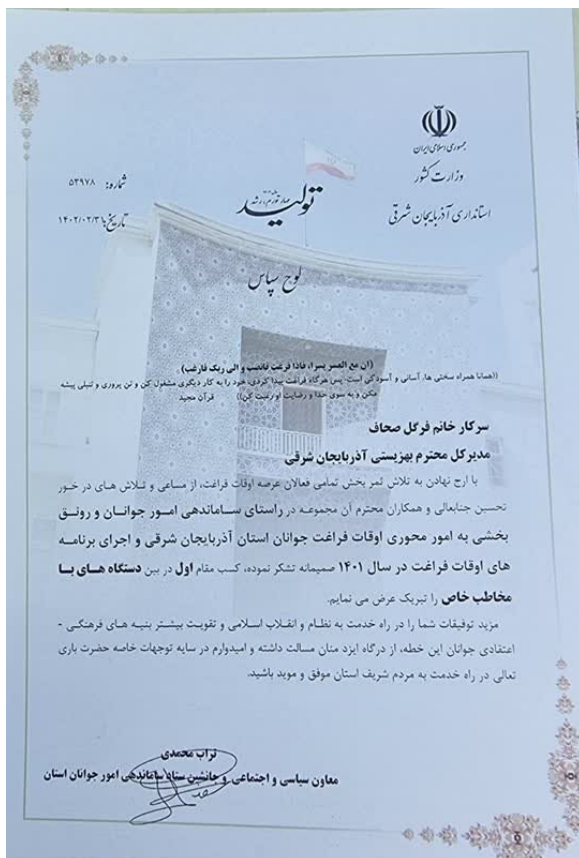 جمهوری اسلامی ایران
وزارت کشور
استانداری آذربایجان شرقی
شماره: ۵۳۹۷۸
تاریخ: ۱۴۰۲/۰۲/۳۱
تولید
مهار تورم، رشد
لوح سپاس
(ان مع العسر یسرا، فاذا فرغت فانصب و الی ربک فارغب)
((همانا همراه سختی ها، آسانی و آسودگی است، پس هرگاه فراغت پیدا کردی، خود را به کار دیگری مشغول کن و تن پروری و تنبلی پیشه
مکن و به سوی خدا و رضایت او رغبت کن)) قرآن مجید
سرکار خانم فرگل صحاف
مدیرکل محترم بهزیستی آذربایجان شرقی
با ارج نهادن به تلاش ثمر بخش تمامی فعالان عرصه اوقات فراغت، از مساعی و تلاش های در خور
تحسین جنابعالی و همکاران محترم آن مجموعه در راستای ساماندهی امور جوانان و رونق
بخشی به امور محوری اوقات فراغت جوانان استان آذربایجان شرقی و اجرای برنامه
های اوقات فراغت در سال ۱۴۰۱ صمیمانه تشکر نموده، کسب مقام اول در بین دستگاه های با
مخاطب خاص را تبریک عرض می نمایم.
مزید توفیقات شما را در راه خدمت به نظام و انقلاب اسلامی و تقویت بیشتر بنیه های فرهنگی -
اعتقادی جوانان این خطه، از درگاه ایزد منان مسالت داشته و امیدوارم در سایه توجهات خاصه حضرت باری
تعالی در راه خدمت به مردم شریف استان موفق و موید باشید.
تراب محمدی
معاون سیاسی و اجتماعی و جانشین ستاد ساماندهی امور جوانان استان